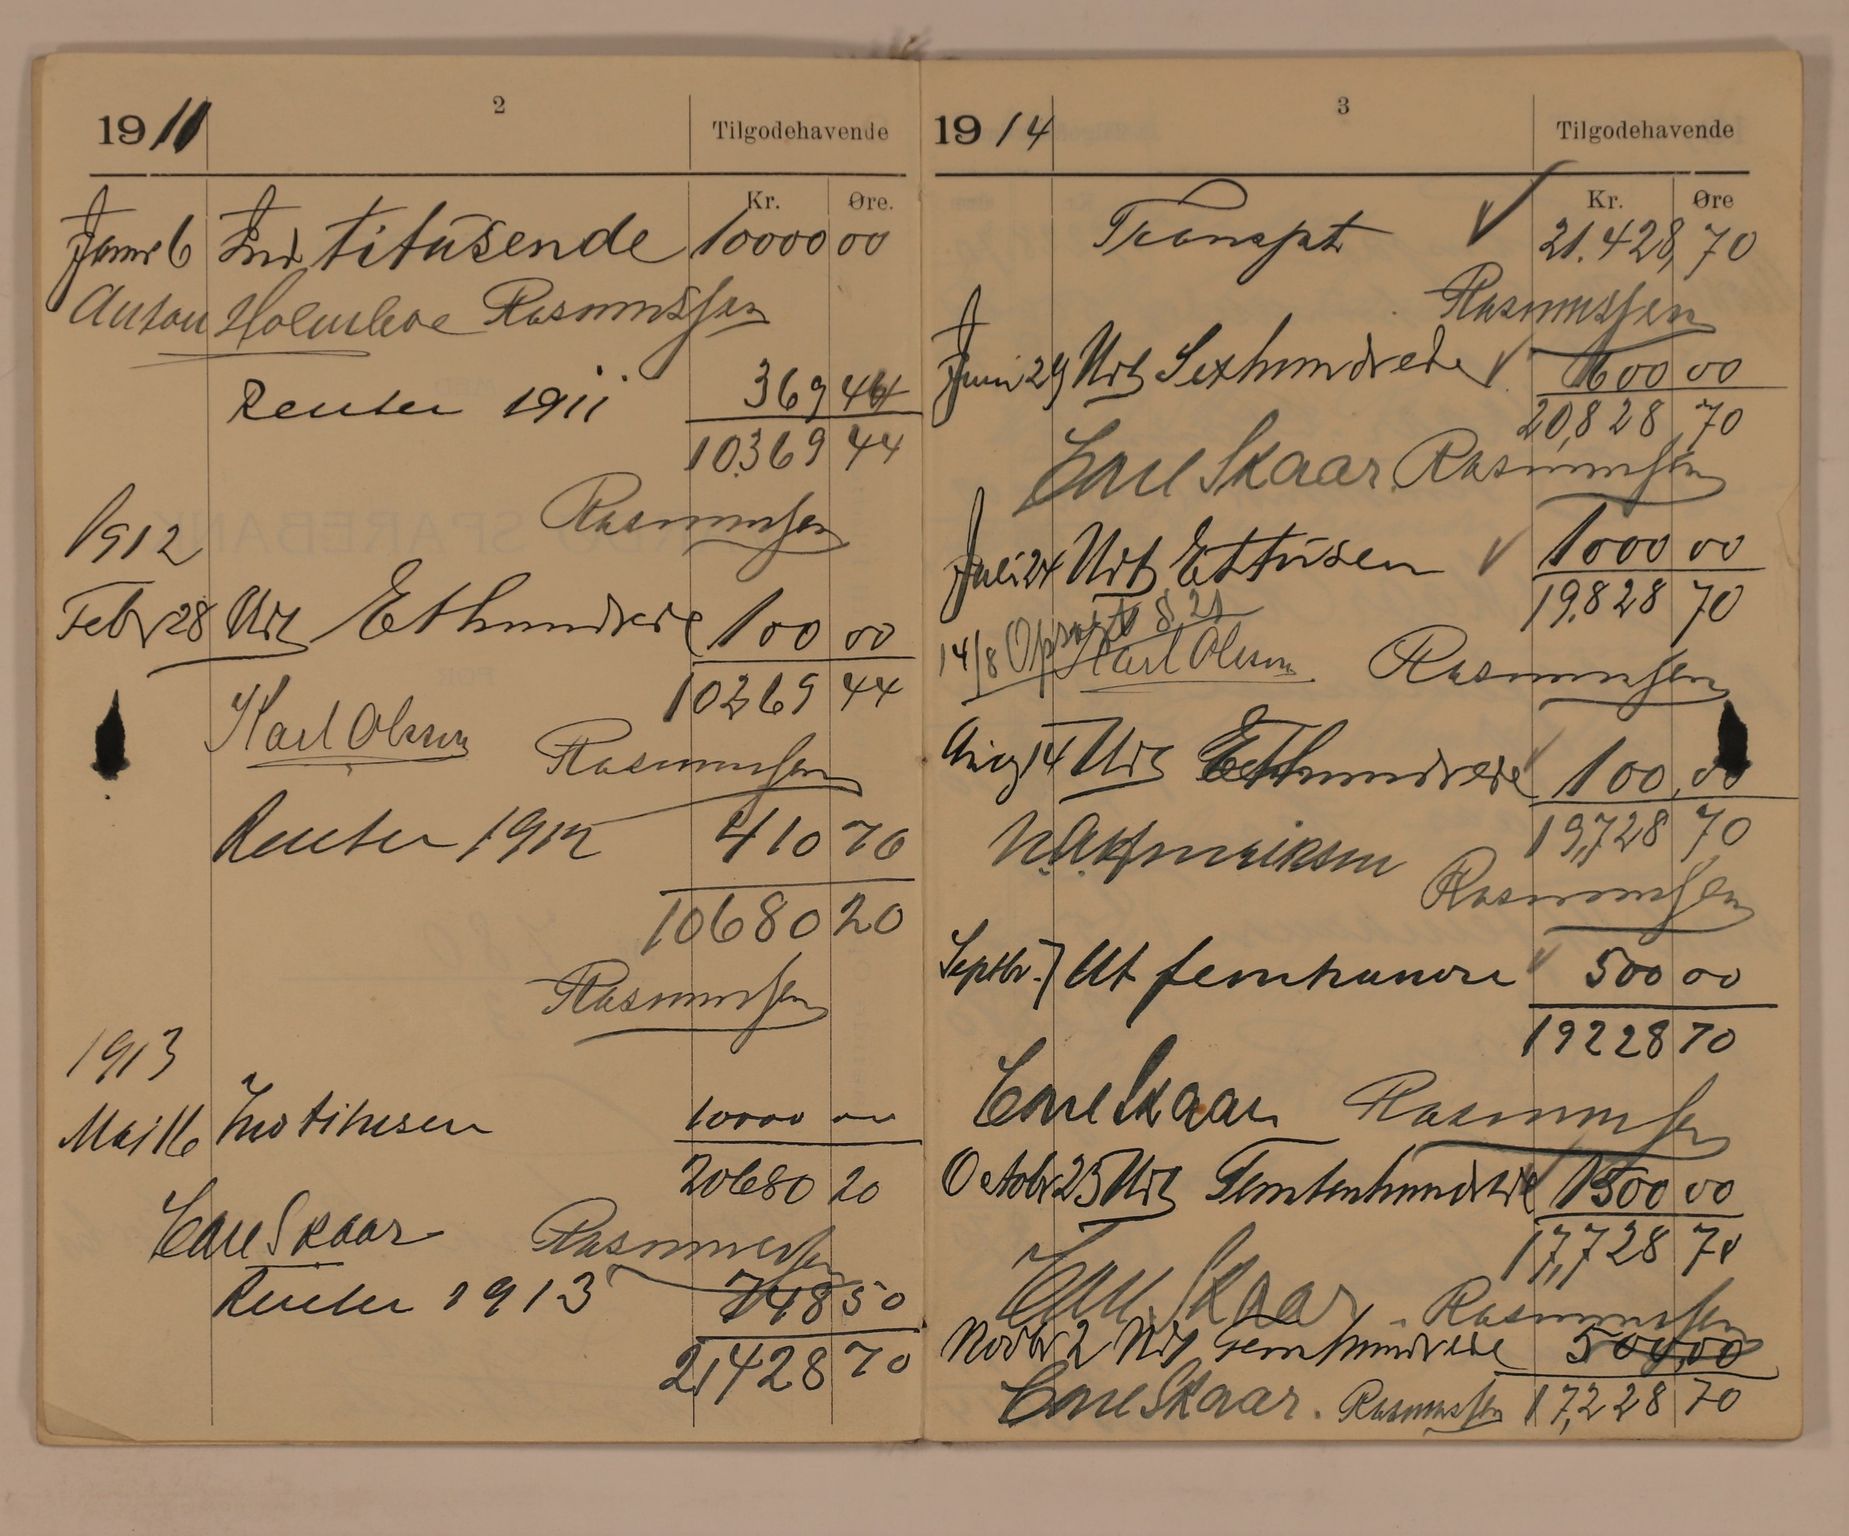 2
1911 Tilgodehavende
Kr. Øre.
Januar 6 Ind titusende 10000 00
Anton Holmboe Rasmussen
Renter 1911 369 44
10369 44
Rasmussen
1912
Febr 28 Udt Ethundrede 100 00
10269 44
Karl Olssen Rasmussen
Renter 1912 410 76
10680 20
Rasmussen
1913
Mai 16 Ind titusen 10000 00
20680 20
Carl Skaar Rasmussen
Renter 1913 748 50
21428 70
3
1914 Tilgodehavende
Kr. Øre
Transpt 21.428,70
Rasmussen
Juni 29 Udt Sexhundrede 600 00
20,828 70
Carl Skaar. Rasmussen
Juli 24 Udt Ettusen 1000 00
19,828 70
14/8 Opsagt 8,21
Karl Olssen Rasmussen
Aug 14 Udt Ethundrede 100,00
19,728 70
Rasmussen
Septbr. 7 Ut femhundre 500 00
19228 70
Carl Skaar Rasmussen
Octobr 25 Udt Femtenhundrede 1500 00
17,728 70
Carl Skaar. Rasmussen
Novbr 2 Udt Femhundrede 500,00
Carl Skaar. Rasmussen 17,228 70